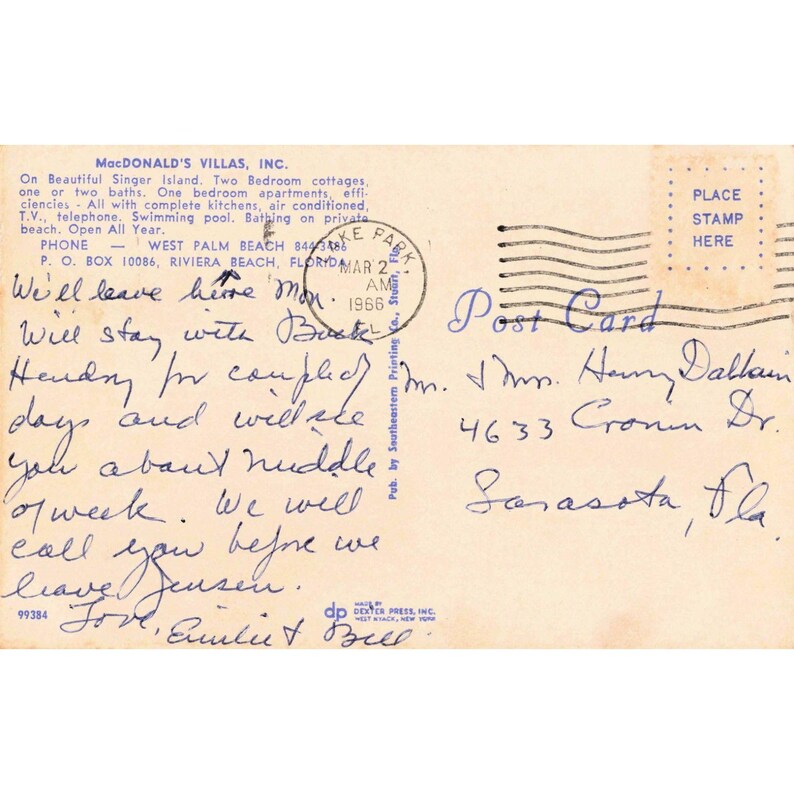 MacDONALD'S VILLAS, INC.
On Beautiful Singer Island. Two Bedroom cottages,
one or two baths. One bedroom apartments, effi-
ciencies - All with complete kitchens, air conditioned,
T.V., telephone. Swimming pool. Bathing on private
beach. Open All Year.
PHONE — WEST PALM BEACH 844-3486
P. O. BOX 10086, RIVIERA BEACH, FLORIDA
We'll leave here Mon.
Will stay with Buck
Hendry for couple of
days and will see
you about middle
of week. We will
call you before we
leave Jensen.
Love,
Emilie & Bill.
99384
dp MADE BY
DEXTER PRESS, INC.
WEST NYACK, NEW YORK
Pub. by Southeastern Printing Co., Stuart, Fla.
LAKE PARK
MAR 2
AM
1966
FL
PLACE
STAMP
HERE
Post Card
Mr. & Mrs. Henry
4633 Cronin Dr.
Sarasota, Fla.